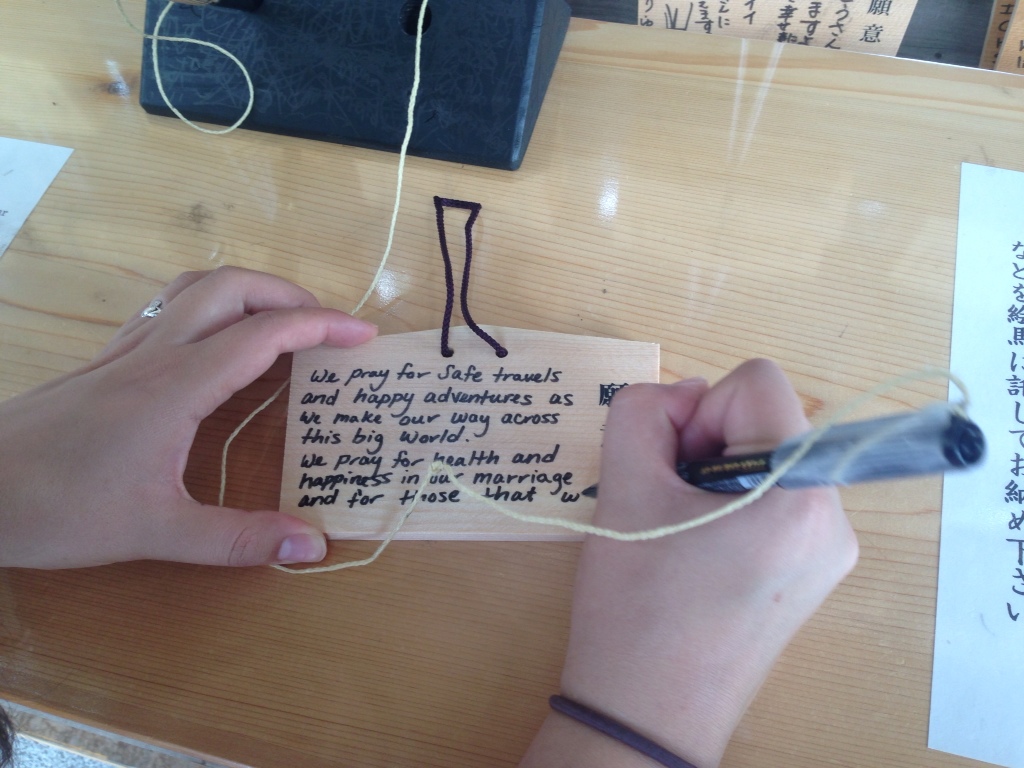 We pray for safe travels
and happy adventures as
we make our way across
this big world.
We pray for health and
happiness in our marriage
and for those that w
願
願意
などを絵馬に託してお納め下さい